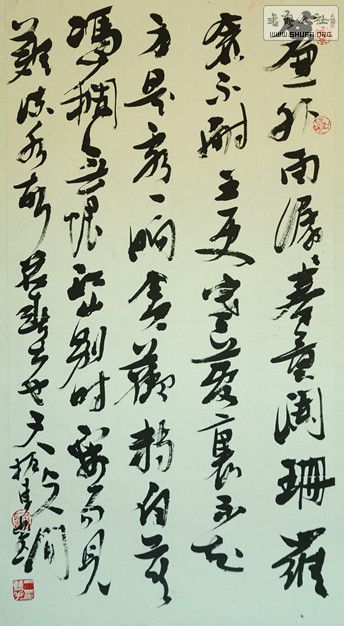 簾外雨潺々春意闌珊羅
衾不耐五更寒夢裏不知
身是客一晌貪歡獨自莫
憑欄無限江山別時容易見
難流水落花春去也天上人間
WWW.SHUFA.ORG